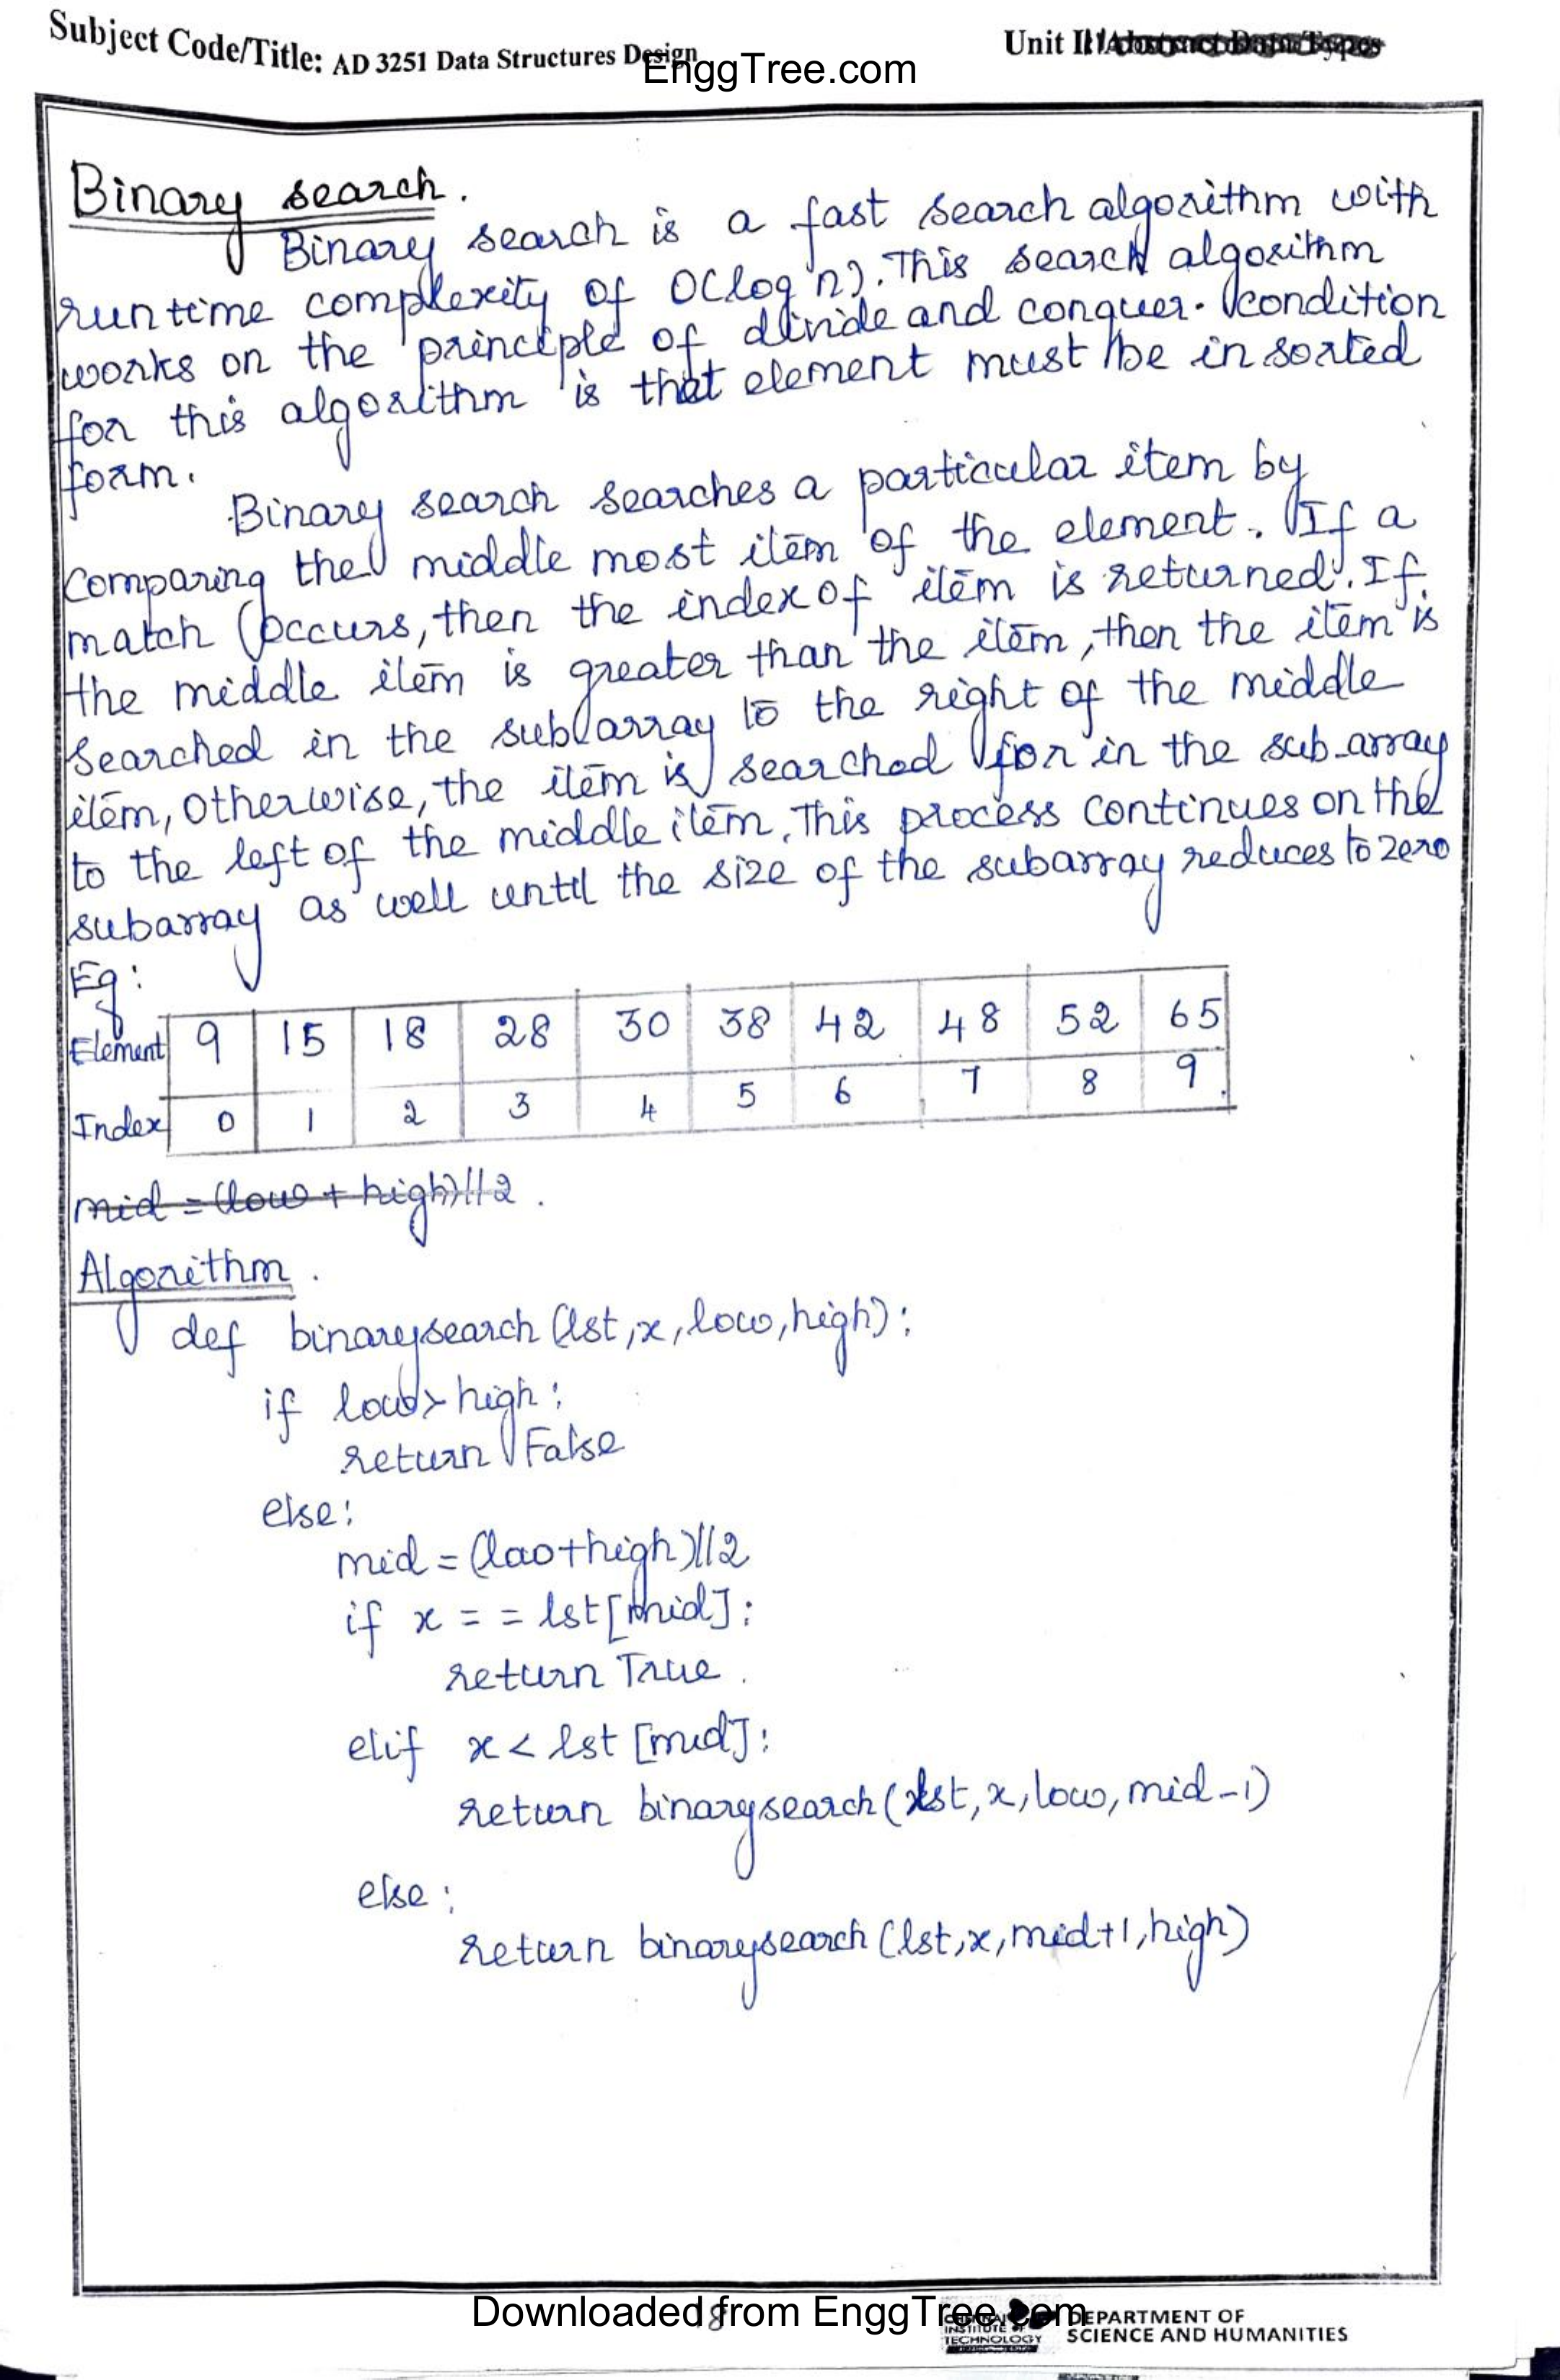 Subject Code/Title: AD 3251 Data Structures Design
Unit II
EnggTree.com
Binary search.
Binary search is a fast search algorithm with
run time complexity of O(log n). This search algorithm
works on the principle of divide and conquer. condition
for this algorithm is that element must be in sorted
form.
Binary search searches a particular item by
comparing the middle most item of the element. If a
match occurs, then the index of item is returned. If
the middle item is greater than the item, then the item is
searched in the sub array to the right of the middle
item, otherwise, the item is searched for in the sub-array
to the left of the middle item. This process continues on the
subarray as well until the size of the subarray reduces to zero
Eg:
Element 9 15 18 28 30 38 42 48 52 65
Index 0 1 2 3 4 5 6 7 8 9
mid = (low + high)//2.
Algorithm.
def binarysearch (lst, x, low, high):
if low > high:
return False
else:
mid = (lao+high)//2
if x = = lst[mid]:
return True.
elif x < lst [mid]:
return binarysearch (lst, x, low, mid-1)
else:
return binarysearch (lst, x, mid+1, high)
18
Downloaded from EnggTree.com
INSTITUTE OF
TECHNOLOGY
DEPARTMENT OF
SCIENCE AND HUMANITIES